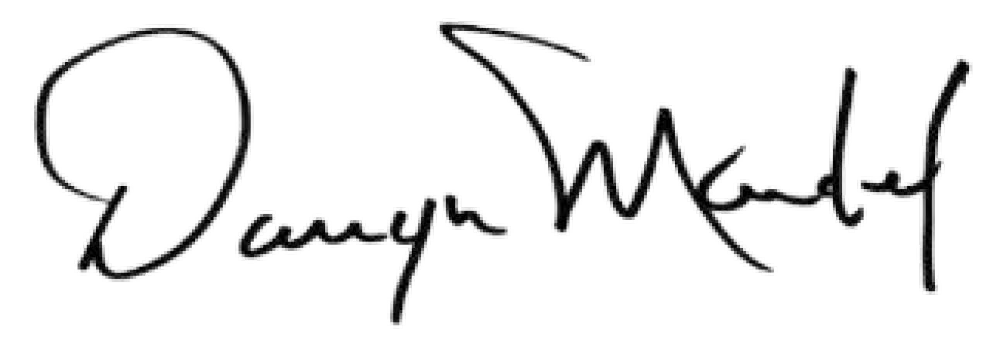 Darryn Mandel